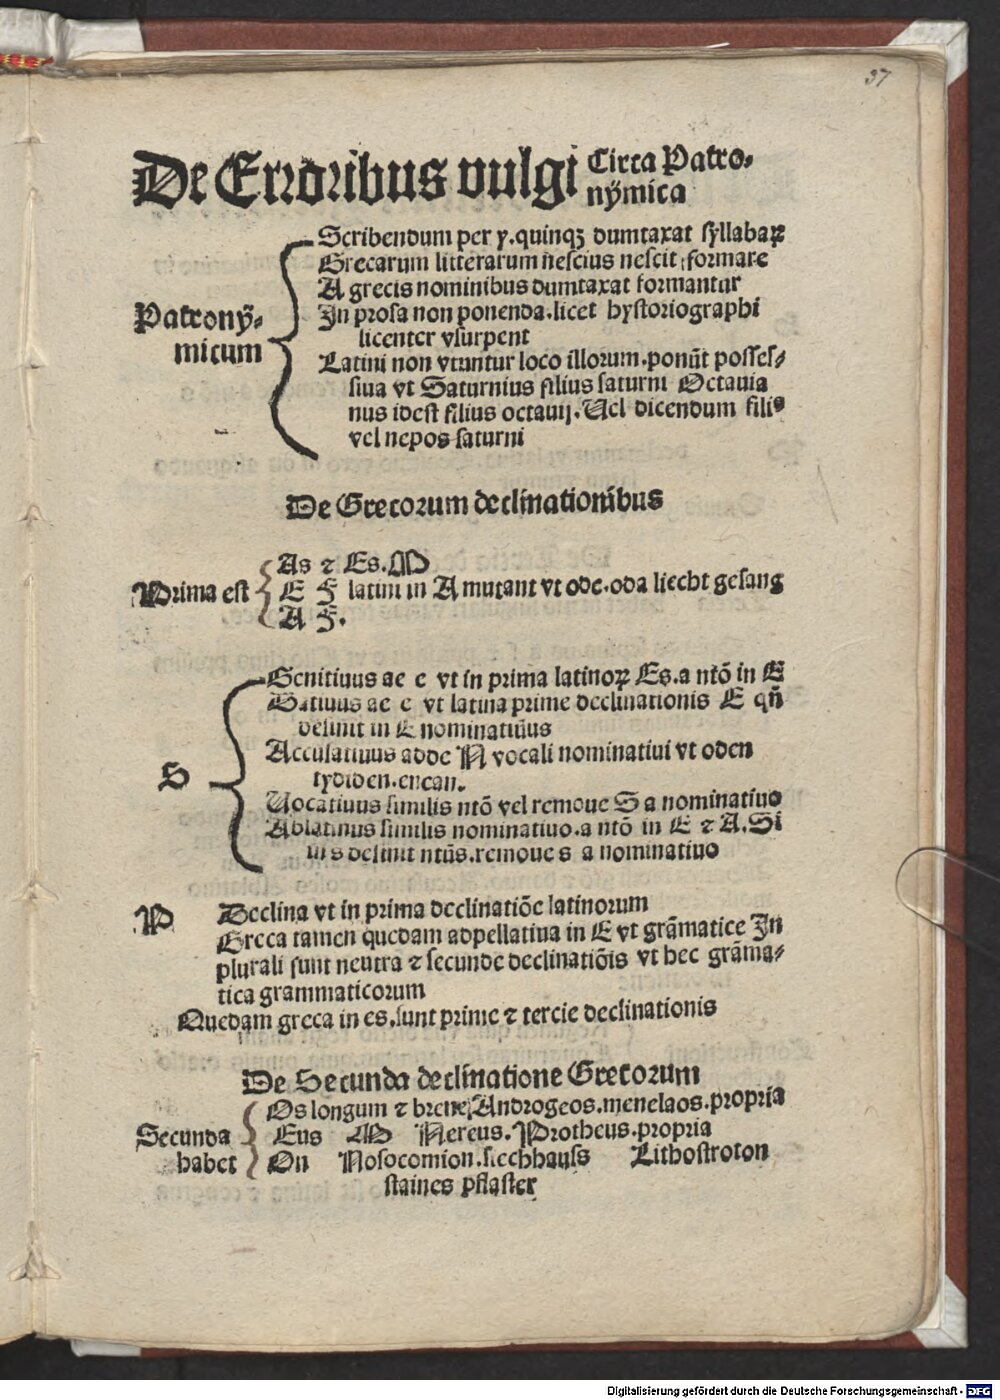 37
De Erroribus vulgi Circa Patro-
nÿmica
Scribendum per y. quinqꝫ dumtaxat syllabaꝝ
Grecarum litterarum nescius nescit formare
A grecis nominibus dumtaxat formantur
In prosa non ponenda. licet hystoriographi
licenter vsurpent
Patronÿ-
micum
Latini non vtuntur loco illorum. ponūt posses-
siua vt Saturnius filius saturni Octauia
nus idest filius octauij. Uel dicendum filiꝰ
vel nepos saturni
De Grecorum declinationibus
As ⁊ Es. M
Prima est E F latini in A mutant vt ode. oda liecht gesang
A F.
Genitiuus ae e vt in prima latinoꝝ Es. a ntō in E
Datiuus ae e vt latina prime declinationis E qn̄
desinit in E nominatiuus
Accusatiuus adde N vocali nominatiui vt oden
S
tydiden. enean.
Uocatiuus similis ntō vel remoue S a nominatiuo
Ablatiuus similis nominatiuo. a ntō in E ⁊ A. Si
in s desinit ntūs. remoue s a nominatiuo
P Declina vt in prima declinatiōe latinorum
Greca tamen quedam adpellatiua in E vt grāmatice In
plurali sunt neutra ⁊ secunde declinatiōis vt hec grāma-
tica grammaticorum
Quedam greca in es. sunt prime ⁊ tercie declinationis
De Secunda declinatione Grecorum
Os longum ⁊ breue Androgeos. menelaos. propria
Secunda Eus M Nereus. Protheus. propria
habet On Nosocomion. siechhauss Lithostroton
staines pflaster
Digitalisierung gefördert durch die Deutsche Forschungsgemeinschaft - DFG